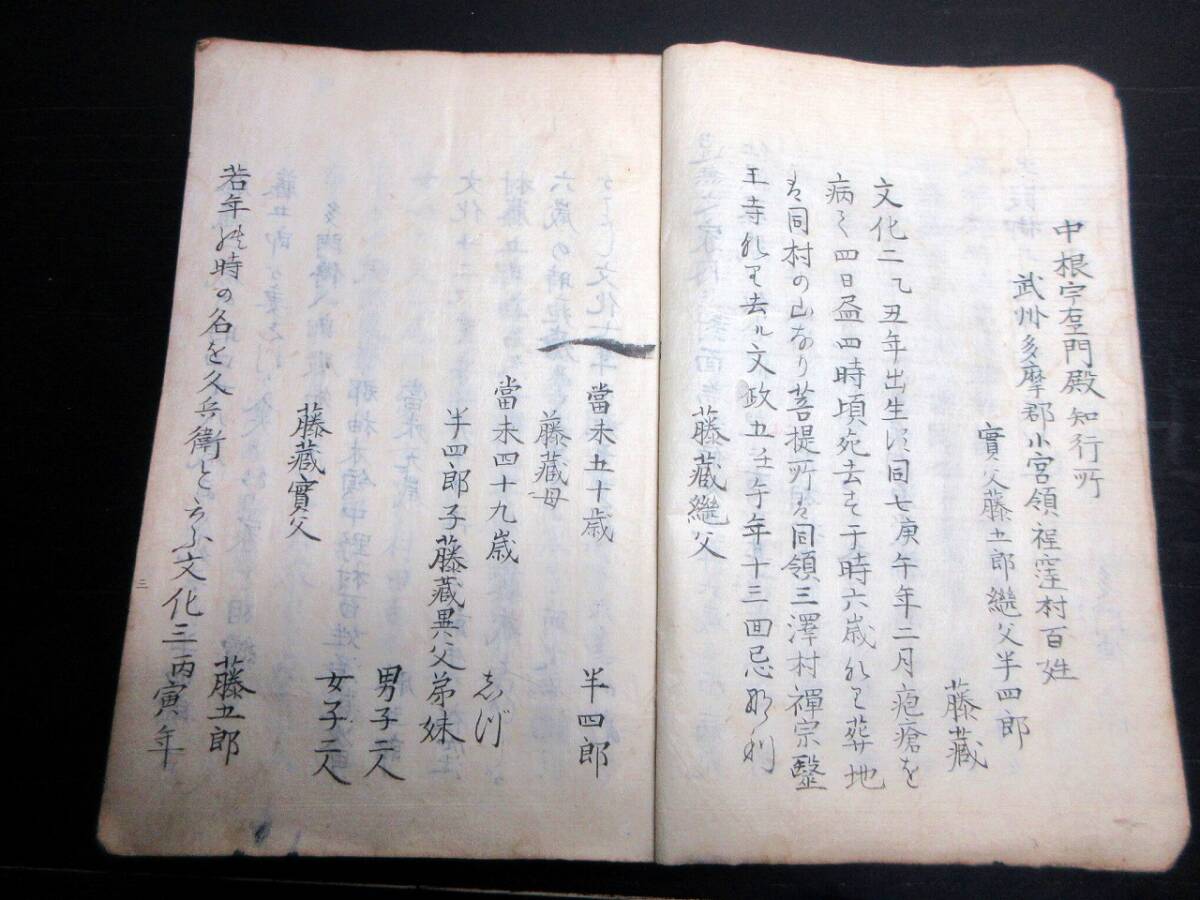 中根宇右衛門殿知行所
武州多摩郡小宮領程窪村百姓
實父藤五郎継父半四郎
藤藏
文化二乙丑年出生ス同七庚午年二月疱瘡を
病ミ四日昼四時頃死去す于時六歳也葬地
ハ同村の山なり菩提所ハ同領三澤村禪宗醫
王寺也去ル文政五壬午年十三回忌なり
藤藏継父
半四郎
當未五十歳
藤藏母
志づ
當未四十九歳
半四郎子藤藏異父弟妹
男子二人
女子二人
藤藏實父
藤五郎
若年の時の名を久兵衛と云ふ文化三丙寅年
三